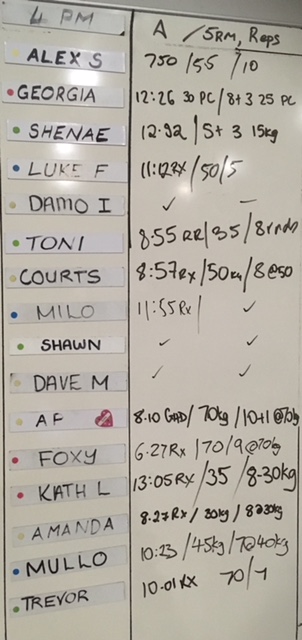 4 PM A / 5RM, Reps
ALEX S 750 / 55 / 10
GEORGIA 12:26 30 PC / 8+3 25 PC
SHENAE 12.92 / 5+3 15kg
LUKE F 11:12RX / 50 / 5
DAMO I ✓ –
TONI 8:55 RR / 35 / 8 rnds
COURTS 8:57Rx / 50kg / 8@50
MILO 11:55Rx / ✓
SHAWN ✓ ✓
DAVE M ✓ ✓
AF 8.10 / 70kg / 10+1 @70kg
FOXY 6.27Rx / 70 / 9@70kg
KATH L 13:05RX / 35 / 8-30kg
AMANDA 8.27Rx / 30kg / 8@30kg
MULLO 10:23 / 45kg / 7@40kg
TREVOR 10.01RX 70 / 7